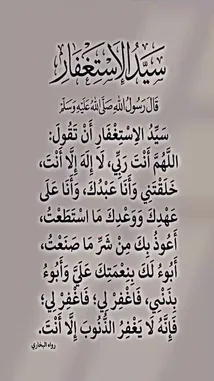 سَيِّدُ الِاسْتِغْفَارِ
قَالَ رَسُولُ اللَّهِ صَلَّى اللَّهُ عَلَيْهِ وَسَلَّمَ
سَيِّدُ الِاسْتِغْفَارِ أَنْ تَقُولَ:
اللَّهُمَّ أَنْتَ رَبِّي، لَا إِلَهَ إِلَّا أَنْتَ،
خَلَقْتَنِي وَأَنَا عَبْدُكَ، وَأَنَا عَلَى
عَهْدِكَ وَوَعْدِكَ مَا اسْتَطَعْتُ،
أَعُوذُ بِكَ مِنْ شَرِّ مَا صَنَعْتُ،
أَبُوءُ لَكَ بِنِعْمَتِكَ عَلَيَّ وَأَبُوءُ
بِذَنْبِي، فَاغْفِرْ لِي؛ فَاغْفِرْ لِي؛
فَإِنَّهُ لَا يَغْفِرُ الذُّنُوبَ إِلَّا أَنْتَ.
رواه البخاري